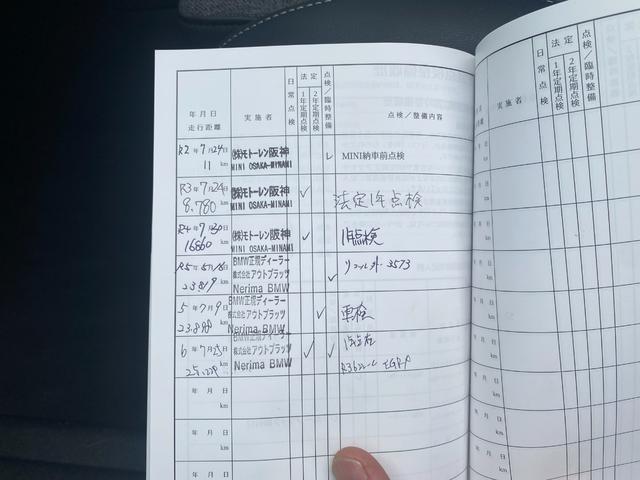 年月日
走行距離
実施者
日常点検
法定
1年定期点検
2年定期点検
点検/臨時整備
点検/整備内容
R2年7月24日
11 km
(株)モトーレン阪神
MINI OSAKA-MINAMI
MINI納車前点検
R3年7月24日
8,780 km
(株)モトーレン阪神
MINI OSAKA-MINAMI
法定1年点検
R4年7月30日
16860 km
(株)モトーレン阪神
MINI OSAKA-MINAMI
1年点検
BMW正規ディーラー
株式会社アウトプラッツ
Nerima BMW
リコール 3573
5年7月9日
BMW正規ディーラー
株式会社アウトプラッツ
Nerima BMW
車検
6年7月25日
BMW正規ディーラー
株式会社アウトプラッツ
Nerima BMW
年月日
km
年月日
km
年月日
日常点検
法定
1年定期点検
2年定期点検
点検/臨時整備